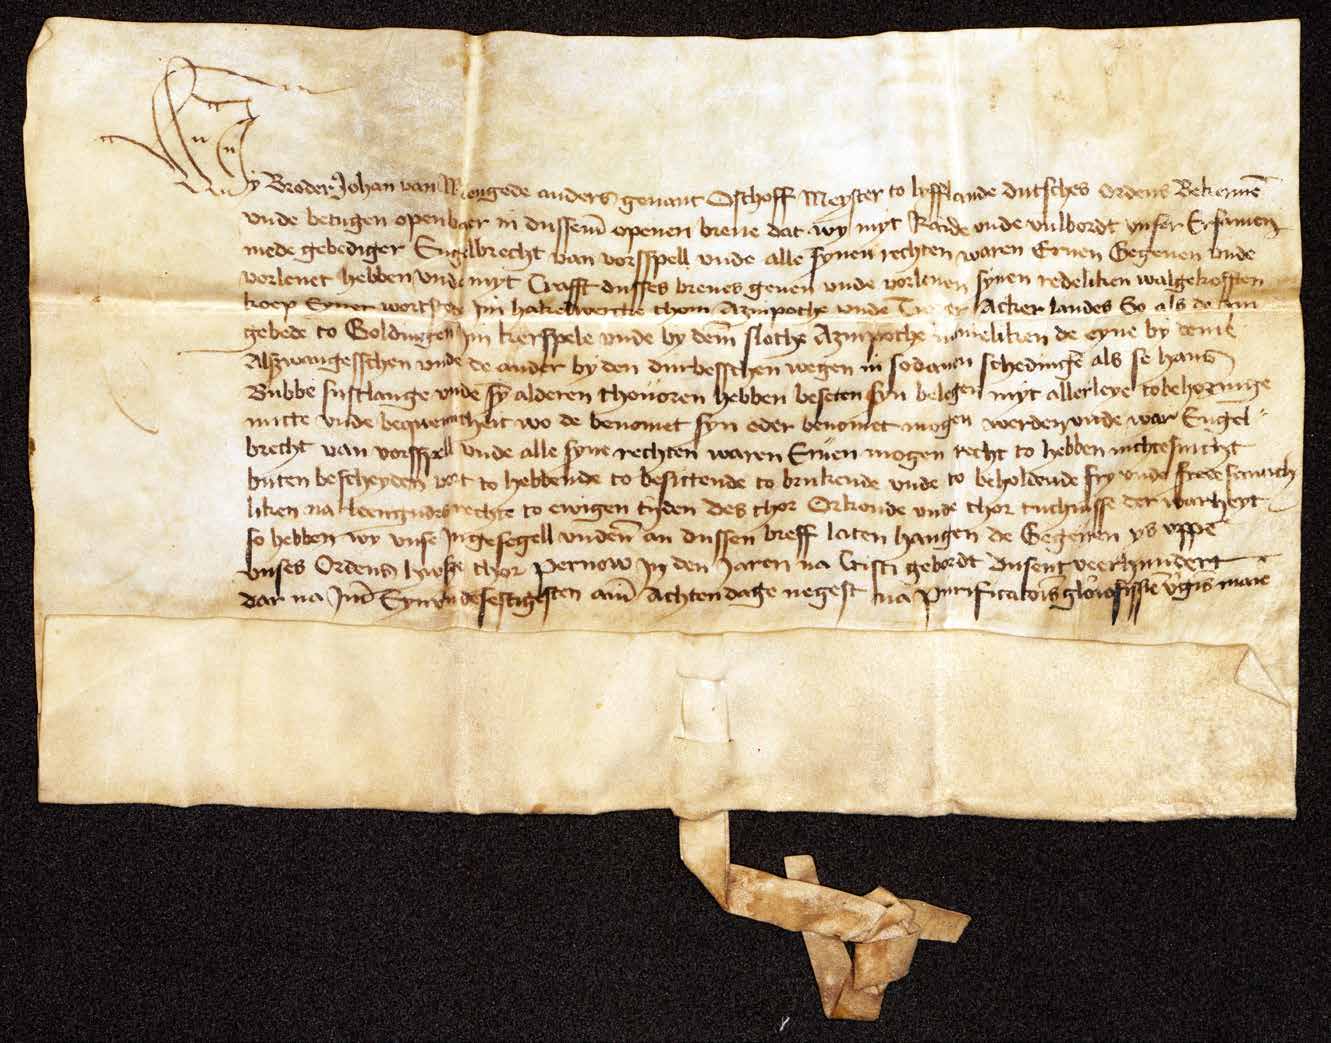 Wy Broder Johan van Mengede anders genant Osthoff Meyster to lyfflande dutsches Ordens Bekennē
vnde betugen openbaer in dussem̄ openen breue dat wy myt Rade vnde vulbordt vnser Ersamen
mede gebediger Engelbrecht van vorsspell vnde alle synen rechten waren Eruen Gegeuen vnde
vorlenet hebben vnde myt Crafft dusses breues geuen vnde vorlenen synen redeliken walgekofften
koep Syner wortstede Jm hakelwercke thom Azmpothe vnde acker landes So als de Jm
gebede to Goldingen Jm kerspele vnde by dem̄ slothe Azmpothe de eyne by deme
Alszwangesschen vnde de ander by den durbesschen wegen in sodanen schedinge als se hans
Bubbe sustlange vnde sy alderen thouoren hebben beseten syn belegen myt allerleye tobehoringe
nutte vnde bequemcheit wo de benomet syn eder benomet mogen werden vnde war Engel
brecht van vorsspell vnde alle syne rechten waren Eruen mogen recht to hebben nichtesnicht
buten bescheyden vort to hebbende to besittende to brukende vnde to beholdende fry vnde fredesamich
liken na leengudes rechte to ewigen tyden Des thor Orkonde vnde thor tuchnisse der warheyt
so hebben wy vnse Jngesegell vnden̄ an dussen breff laten hangen de Gegeuen ys vppe
vnses Ordens houe thor Pernow Jn den Jaren na Cristi gebordt dusent veerhundert
dar na Jm̄ Eynvndesestigesten am̄ Achtendage negest na Purificatōis glōriosissīe v̄gīs marie